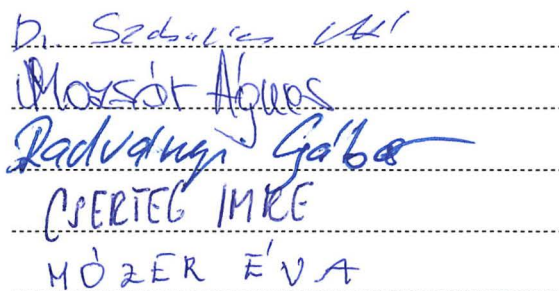 Dr. Szabolcs
Mozsár Ágnes
Radványi Gábor
CSERTEG IMRE
MÓZER ÉVA